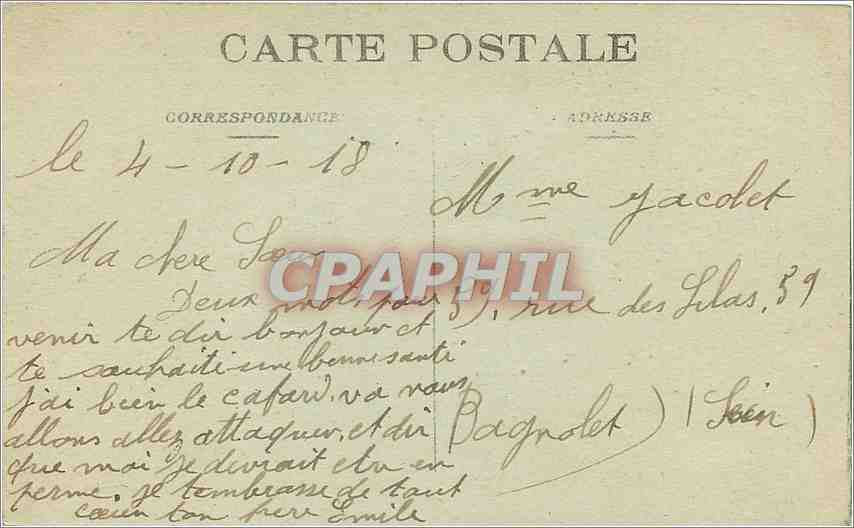 CARTE POSTALE
CORRESPONDANCE
ADRESSE
le 4-10-18
Ma chere Sœur
Deux mots pour
venir te dir bonjour et
te souhaiti une bonne santi
j'ai bien le cafard. va nous
allons allez attaquer, et dir
que moi je devrait etre en
perme. je tembrasse de tout
cœur ton frere Emile
Mme Jacolet
59, rue des Lilas, 59
Bagnolet (Sein)
CPAPHIL